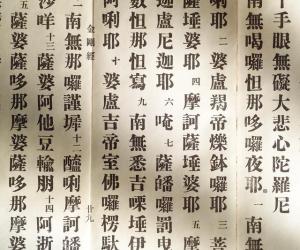 千手眼無礙大悲心陀羅尼
南無喝囉怛那哆囉夜耶 一 南無
唎耶 二 婆盧羯帝爍鉢囉耶 三 菩
薩埵婆耶 四 摩訶薩埵婆耶 五 摩
迦盧尼迦耶 六 唵 七 薩皤囉罰曳
數怛那怛寫 九 南無悉吉㗚埵伊
阿唎耶 十 婆盧吉帝室佛囉楞馱
金剛經 廿九
二 南無那囉謹墀 十二 醯唎摩訶
沙咩 十三 薩婆阿他豆輸朋 十四 阿逝
五 薩婆薩哆那摩婆薩哆那摩